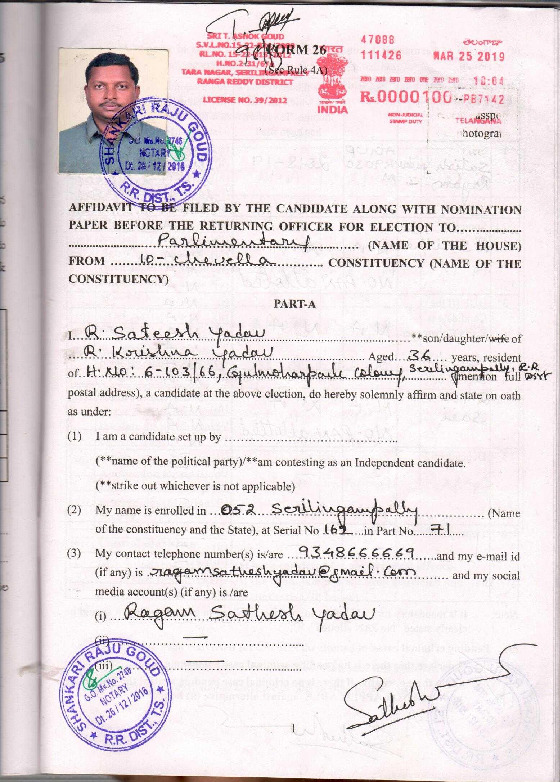 SRI T. ASHOK GOUD
FORM 26
(See Rule-4A)
TARA NAGAR, SERILINGAMPALLY
RANGA REDDY DISTRICT
LICENSE NO. 39/2012
INDIA
47088
111426
MAR 25 2019
10:04
Rs.0000100
PB7142
NON-JUDICIAL
STAMP DUTY
TELANGANA
SHANKARI RAJU GOUD
NOTARY
Dt. 26/12/2016
R.R. DIST., T.S.
AFFIDAVIT TO BE FILED BY THE CANDIDATE ALONG WITH NOMINATION
PAPER BEFORE THE RETURNING OFFICER FOR ELECTION TO...................
Parlimentary (NAME OF THE HOUSE)
FROM 10-Chevella CONSTITUENCY (NAME OF THE
CONSTITUENCY)
PART-A
I. R. Sateesh Yadav **son/daughter/wife of
R. Krishna Yadav Aged 36 years, resident
of H.No: 6-103/66, Gulmoharpark Colony, Serilingampally, R.R Dist (mention full
postal address), a candidate at the above election, do hereby solemnly affirm and state on oath
as under:
(1) I am a candidate set up by ..............................................
(**name of the political party)/**am contesting as an Independent candidate.
(**strike out whichever is not applicable)
(2) My name is enrolled in 052 Serilingampally (Name
of the constituency and the State), at Serial No 162 in Part No. 71
(3) My contact telephone number(s) is/are 9348666669 and my e-mail id
(if any) is ragamsatheeshyadav@gmail.com and my social
media account(s) (if any) is /are
(i) Ragam Sathesh Yadav
(ii)
(iii)
SHANKARI RAJU GOUD
NOTARY
Dt. 26/12/2016
R.R. DIST., T.S.
1